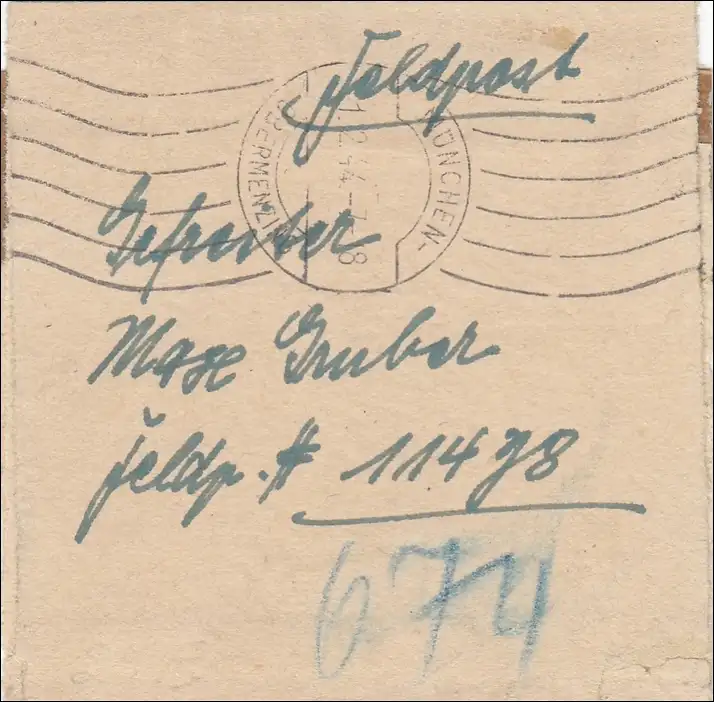 Feldpost
MÜNCHEN-
OBERMENZ
12.44.-7-8
Gefreiter
Max Gruber
Feldp. # 11478
674